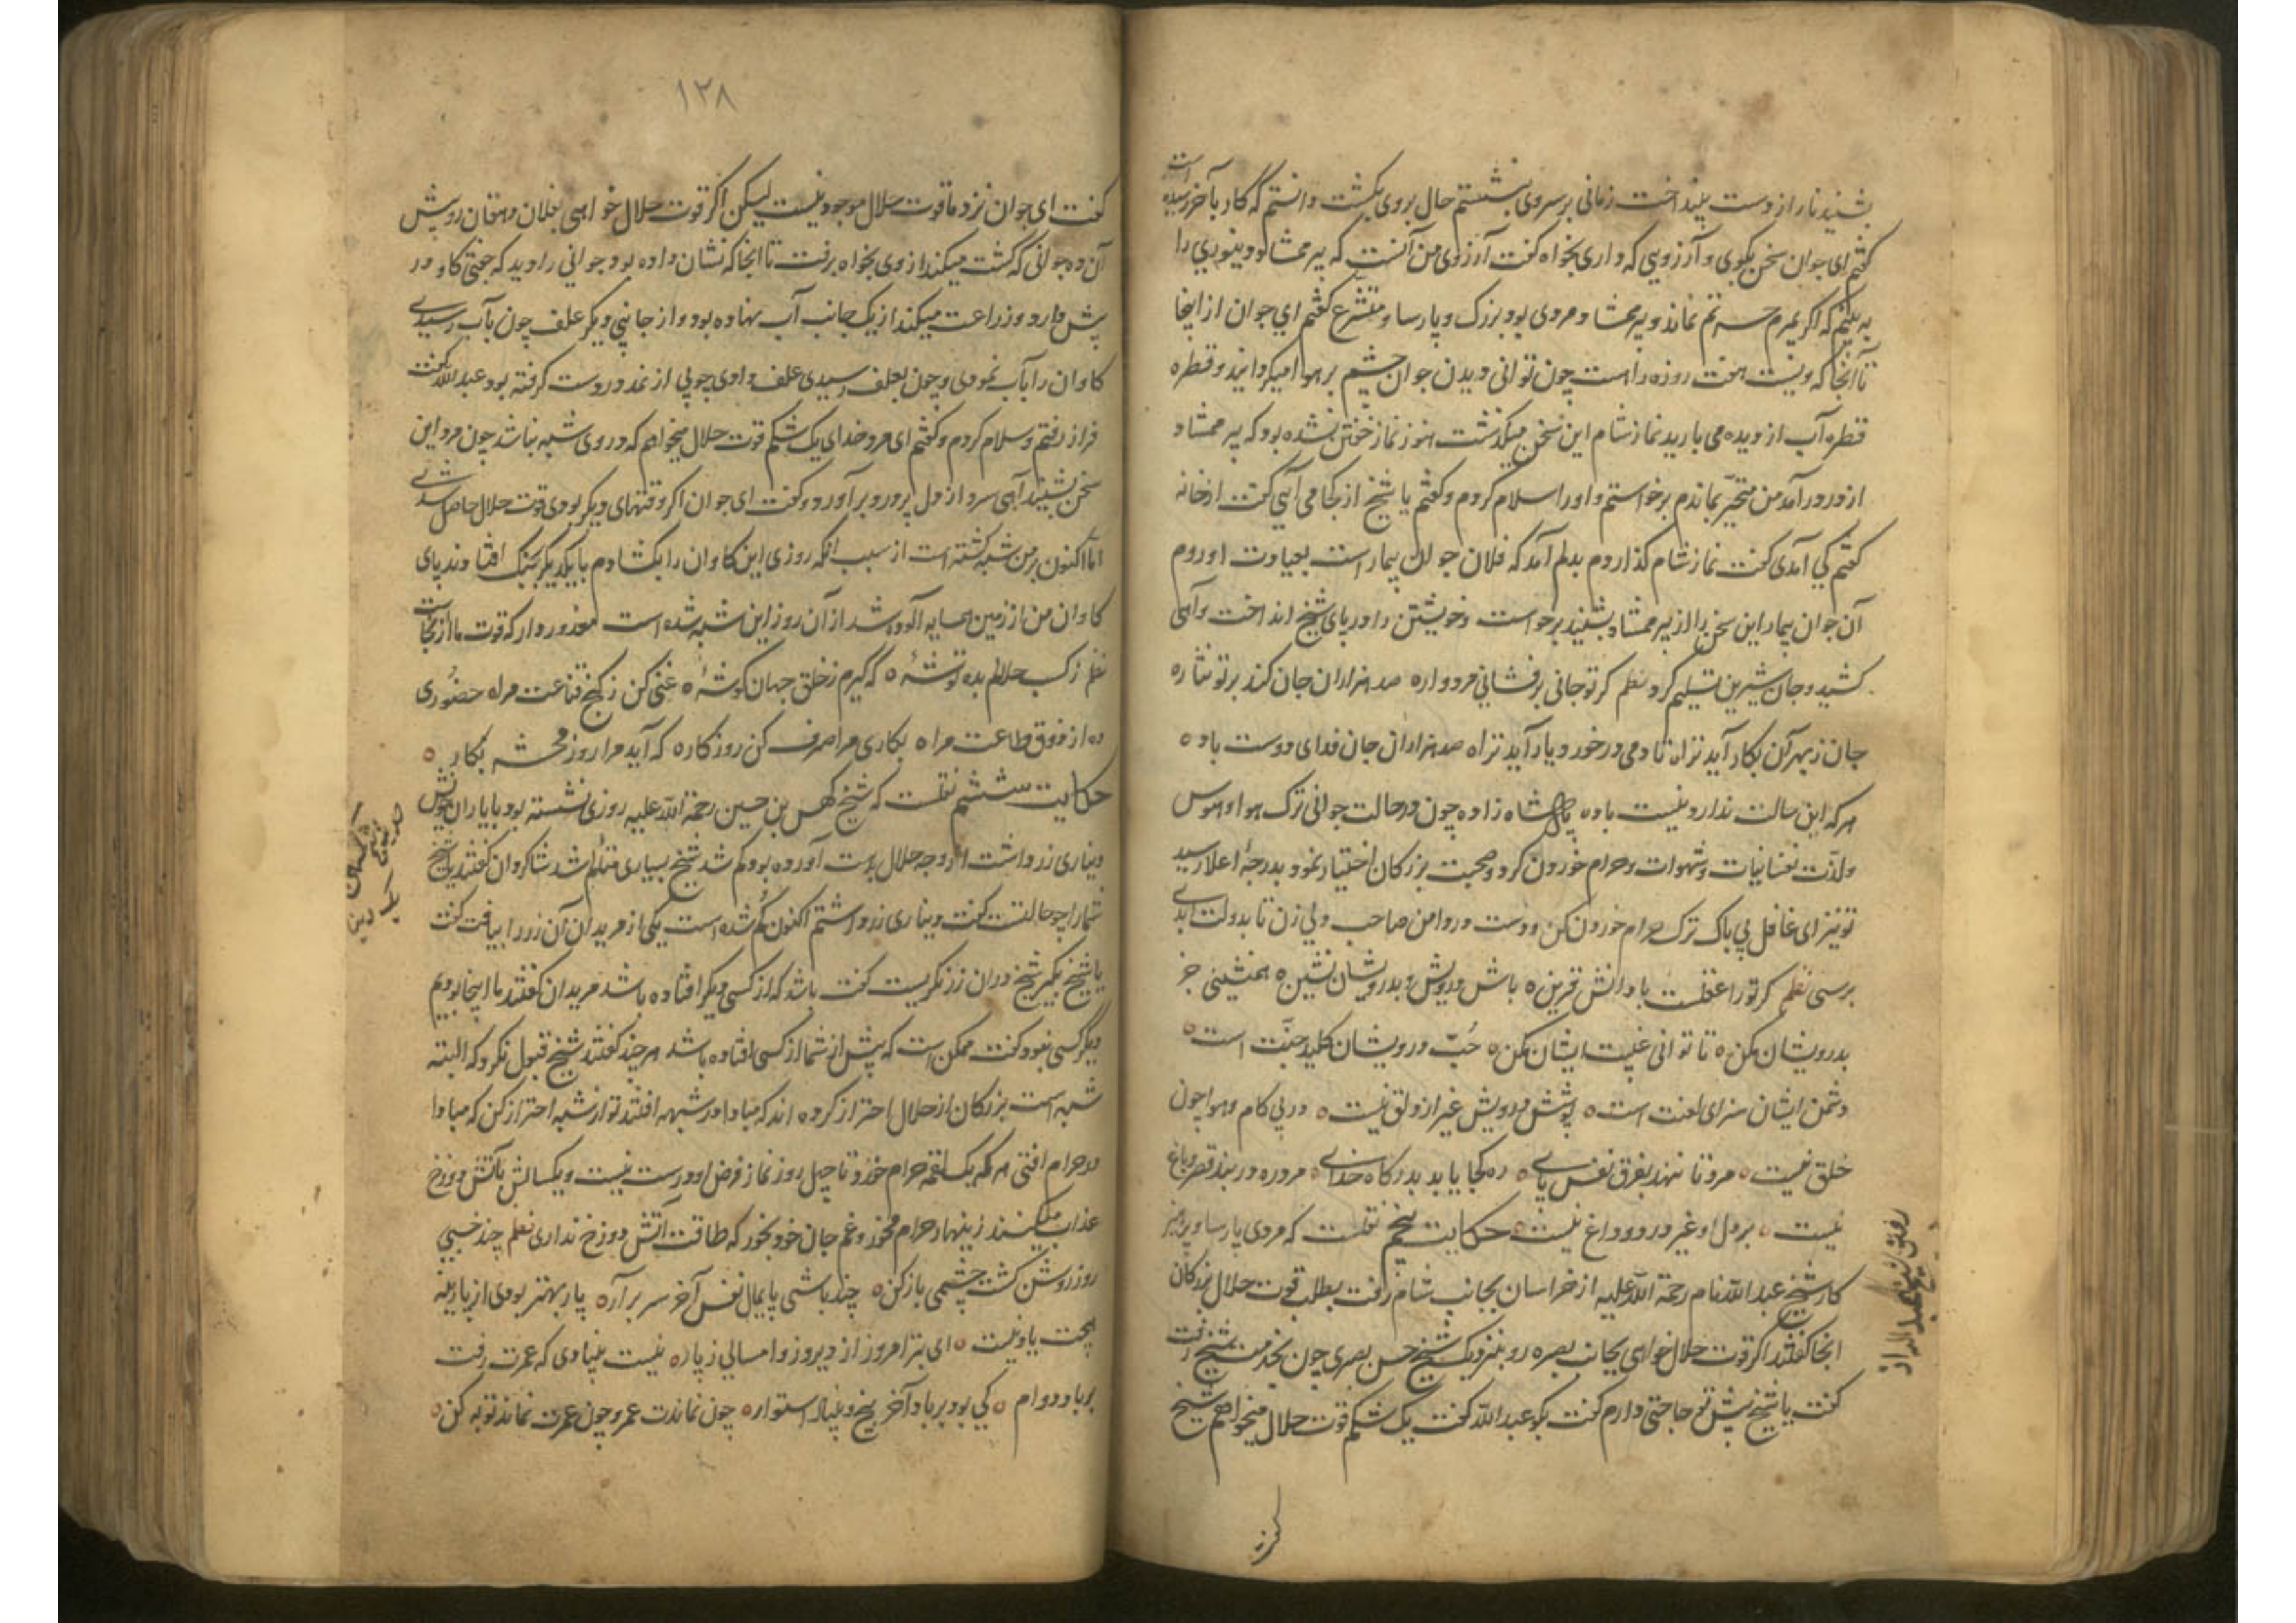 بشنید نار از دست بینداخت زمانی بر سر وی بنشستم حال بروی بکشت دانستم که کار بآخر رسیده است
گفتم ای جوان سخن بگوی و آرزویی که داری بخواه گفت آرزوی من آنست که پیر ممشاد دینوری را
به بینم که اگر بمیرم حسرتم نماند و پیر ممشاد مردی بود بزرگ و پارسا و متشرع گفتم ای جوان از اینجا
تا آنجا که ویست هفت روزه راست چون توانی دیدن جوان چشم بر هوا میگردانید و قطره
قطره آب از دیده می بارید نماز شام این سخن میگذشت هنوز نماز خفتن نشده بود که پیر ممشاد
از در درآمد من متحیّر بماندم برخواستم و او را سلام کردم و گفتم یا شیخ از کجا می آئی گفت از خانه
گفتم کی آمدی گفت نماز شام گذاردم بدلم آمد که فلان جوان بیمار است بعیادت او روم
آن جوان بیمار این سخن را از پیر ممشاد بشنید برخواست و خویشتن را در پای شیخ انداخت و آهی
کشید و جان شیرین تسلیم کرد نظم گر تو جانی برفشانی مردواره صد هزاران جان کند بر تو نثاره
جان ز بهر آن بکار آید تراه تا دمی در خورد یار آید تراه صد هزاران جان فدای دوست باده
هر که این سالت ندارد نیست باده پادشاه زاده چون در حالت جوانی ترک هوا و هوس
و لذّت نفسانیات و شهوات و حرام خوردن کرد و صحبت بزرکان اختیار نمود بدرجهٔ اعلا رسید
تو نیز ای غافل بی باک ترک حرام خوردن کن و دست در دامن صاحب دلی زن تا بدولت ابدی
برسی نظم گر ترا عقلست با دانش قرین ه باش درویش و بدرویشان نشین ه همنشینی جز
بدرویشان مکن ه تا توانی غیبت ایشان مکن ه حُبّ درویشان کلید جنّت است ه
دشمن ایشان سزای لعنت است ه پوشش درویش غیر از دلق نیست ه در پی کام و هوا چون
خلق نیست ه مرد تا ننهد بفرق نفس پای ه ره کجا یابد بدرگاه خدای ه مرد ره در بند قصر و باغ
نیست ه بر دل او غیر درد و داغ نیست ه حکایت پنجم نقلست که مردی پارسا و پرهیز
کار شیخ عبدالله نام رحمة الله علیه از خراسان بجانب شام رفت بطلب قوت حلال بزرکان
آنجا گفتند اگر قوت حلال خواهی بجانب بصره رو بنزدیک شیخ حسن بصری چون بخدمت شیخ رفت
گفت یا شیخ پیش تو حاجتی دارم گفت بگو عبدالله گفت یک شکم قوت حلال میخواهم شیخ
۱۲۸
گفت ای جوان نزد ما قوت حلال موجود نیست لیکن اگر قوت حلال خواهی بفلان دهقان رو پیش
آن ده جوانی که کشت میکند از وی بخواه برفت تا آنجا که نشان داده بود جوانی را دید که جفتی کاو در
پیش دارد و زراعت میکند از یک جانب آب نهاده بود و از جانبی دیگر علف چون بآب رسیدی
کاوان را بآب نمودی و چون بعلف رسیدی علف دادی چوبی از نمد در دست گرفته بود عبدالله گفت
فراز رفتم و سلام کردم و گفتم ای مرد خدای یک شکم قوت حلال میخواهم که در وی شبه نباشد چون مرد این
سخن بشنید آهی سرد از دل پر درد برآورد و گفت ای جوان اگر وقتهای دیگر بودی قوت حلال حاصل شدی
امّا اکنون بر من شبه گشته است از سبب آنکه روزی این کاوان را بگشادم با یکدیگر بجنگ افتادند پای
کاوان من از زمین همسایه آلوده شد از آن روز این شبه شده است معذور دار که قوت ما از آنجاست
نظم ز کسب حلالم بده توشهٔ ه که گیرم ز خلق جهان گوشهٔ ه غنی کن ز گنج قناعت مراه حضوری
ده از ذوق طاعت مراه بکاری مرا صرف کن روزکاره که آید مرا روز محشر بکار ه
حکایت ششم نقلست که شیخ کهمس بن حسین رحمة الله علیه روزی نشسته بود با یاران خویش
دیناری زر داشت از وجه حلال بدست آورده بود گم شد شیخ بسیاری متألم شد شاکردان گفتند یا شیخ
شما را چه حالتست گفت دیناری زر داشتم اکنون گم شده است یکی از مریدان آن زر را بیافت گفت
یا شیخ بگیر شیخ در آن زر نگریست گفت باشد که از کسی دیگر افتاده باشد مریدان گفتند ما اینجا بودیم
دیگر کسی نبود گفت ممکن است که پیش از شما از کسی افتاده باشد هر چند گفتند شیخ قبول نکرد که البته
شبه است بزرکان از حلال احتراز کرده اند که مبادا در شبهه افتند تو از شبه احتراز کن که مبادا
در حرام افتی هر که یک لقمه حرام خورد تا چهل روز نماز فرض او درست نیست و یکسالش بآتش دوزخ
عذاب میکنند زینهار حرام مخور و غم جان خود بخور که طاقت آتش دوزخ نداری نظم چند خسبی
روز روشن گشت چشمی باز کن ه چند باشی پایمال نفس آخر سر برآره پار بهتر بودی از پارینه
هیچت یاد نیست ه ای بتر امروز از دیروز و امسالی ز پاره نیست بنیادی که عمرت رفت
بر باد دوام ه کی بود بر باد آخر بیخ و بنیاد استواره چون نماندت عمر و چون عمرت نماند توبه کن ه